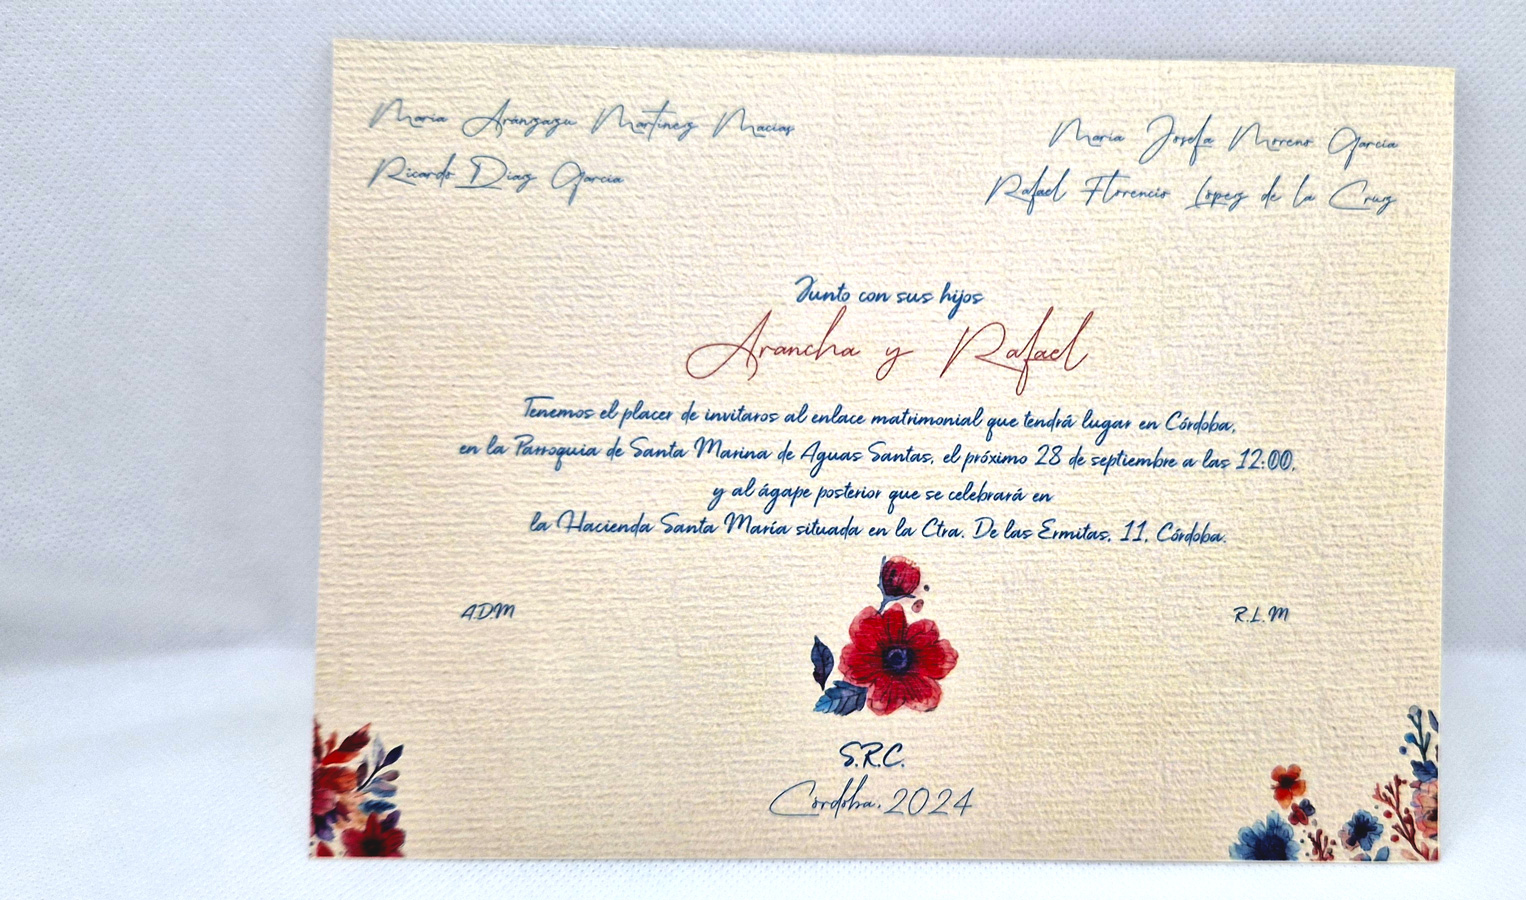 Maria Aranzazu Martinez Macias
Ricardo Diaz Garcia
Maria Josefa Moreno Garcia
Rafael Florencio Lopez de la Cruz
Junto con sus hijos
Arancha y Rafael
Tenemos el placer de invitaros al enlace matrimonial que tendrá lugar en Córdoba,
en la Parroquia de Santa Marina de Aguas Santas, el próximo 28 de septiembre a las 12:00,
y al ágape posterior que se celebrará en
la Hacienda Santa María situada en la Ctra. De las Ermitas, 11, Córdoba.
A.D.M
R.L.M
S.R.C.
Cordoba, 2024